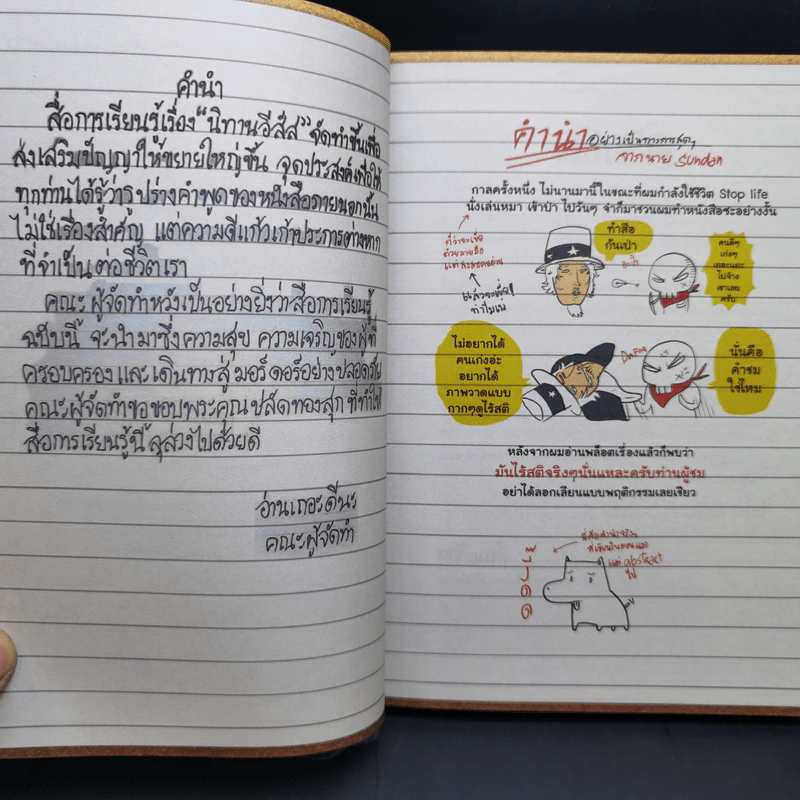 คำนำ
สื่อการเรียนรู้เรื่อง "นิทานอีสัส" จัดทำขึ้นเพื่อ
ส่งเสริมปัญญาให้ขยายใหญ่ขึ้น จุดประสงค์เพื่อให้
ทุกท่านได้รู้ว่ารูปร่างคำพูดของหนังสือภายนอกนั้น
ไม่ใช่เรื่องสำคัญ แต่ความดีแก้วเก้าประการต่างหาก
ที่จำเป็นต่อชีวิตเรา
คณะผู้จัดทำหวังเป็นอย่างยิ่งว่าสื่อการเรียนรู้
ฉบับนี้ จะนำมาซึ่งความสุข ความเจริญของผู้ที่
ครอบครอง และเดินทางสู่มอร์ดอร์อย่างปลอดภัย
คณะผู้จัดทำขอขอบพระคุณปลัดทองสุก ที่ทำให้
สื่อการเรียนรู้นี้ลุล่วงไปด้วยดี
อ่านเถอะดีนะ
คณะผู้จัดทำ
คำนำอย่างเป็นทางการสุดๆ
จากนาย Sundan
กาลครั้งหนึ่ง ไม่นานมานี้ในขณะที่ผมกำลังใช้ชีวิต Stop life
นั่งเล่นหมา เข้าป่า ไปวันๆ จ่าก็มาชวนผมทำหนังสือซะอย่างงั้น
ทำสือ
กันเป่า
คนดีๆ
เก่งๆ
เยอะแยะ
ไปจ้าง
เขาเลย
ครับ
แล้วจะพิมพ์
ทำไมเพ
ไม่อยากได้
คนเก่งอ่ะ
อยากได้
ภาพวาดแบบ
กากๆดูไร้สติ
นั่นคือ
คำชม
ใช่ไหม
หลังจากผมอ่านพล็อตเรื่องแล้วก็พบว่า
มันไร้สติจริงๆนั่นแหละครับท่านผู้ชม
อย่าได้ลอกเลียนแบบพฤติกรรมเลยเชียว
abstract
ไป